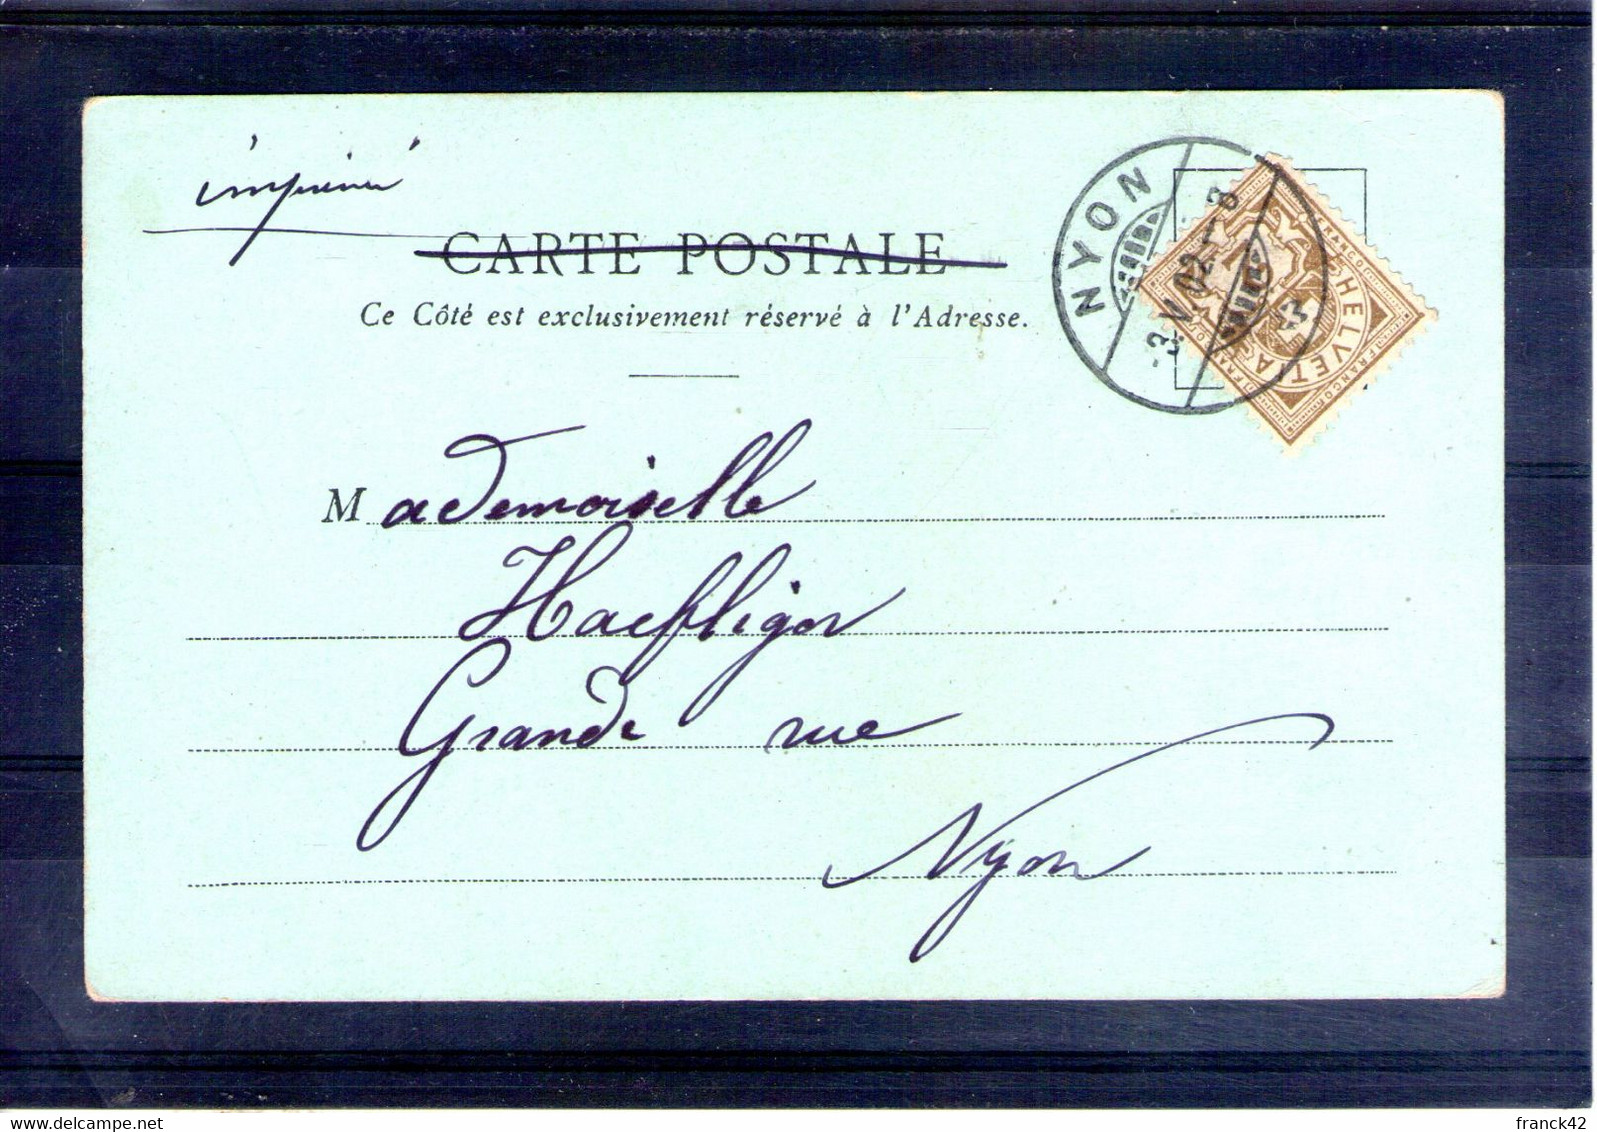 imprimé
CARTE POSTALE
Ce Côté est exclusivement réservé à l'Adresse.
NYON
-3.V.02.-8
HELVETIA
FRANCO
FRANCO
Mademoiselle
Haefliger
Grande rue
Nyon
franck42